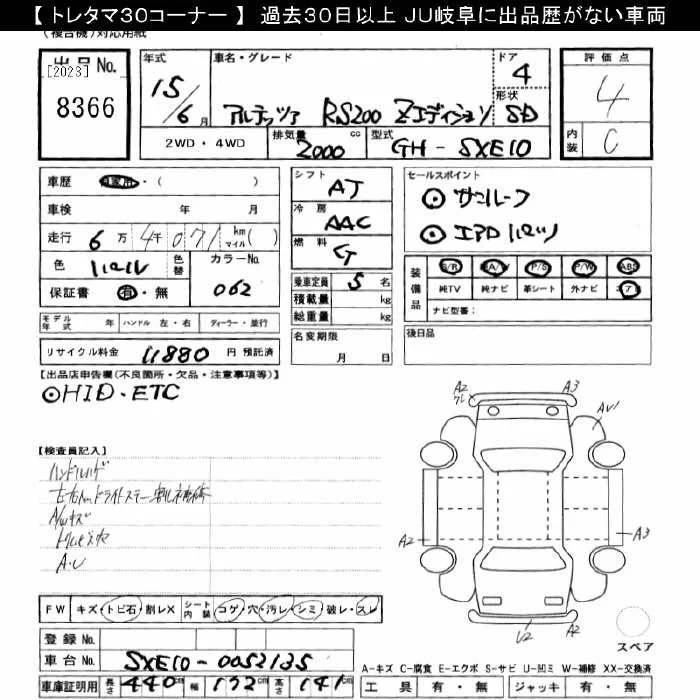 【 トレタマ30コーナー 】 過去30日以上 JU岐阜に出品歴がない車両
(複合機)対応用紙
出品No.
[2023]
8366
年式
15/6月
車名・グレード
アルテッツァ RS200 Zエディション
ドア
4
形状
SD
2WD・4WD
排気量
2000
cc
型式
GH-SXE10
評価点
4
内装
C
車歴 自家用・( )
車検 年 月
走行 6万4千071 km マイル( )
色 パール 色替 カラーNo
保証書 有・無 062
モデル年式 年 ハンドル 左・右 ディーラー・並行
リサイクル料金 11880 円 預託済
シフト AT
冷房 AAC
燃料 G
乗車定員 5 名
積載量 kg
総重量 kg
名変期限
月 日
セールスポイント
⊙ サンルーフ
⊙ エアロパーツ
装備品
S/R A/W P/S P/W ABS
純TV 純ナビ 革シート 外ナビ エアB
ナビ型番:
後日品
【出品店申告欄(不良箇所・欠品・注意事項等)】
⊙HID・ETC
【検査員記入】
ハンドルハゲ
A/Wキズ
A・U
FW キズ・トビ石・割レX シート内装 コゲ・穴・汚レ・シミ・破レ・スレ
登録No.
車台No. SXE10-0052135
車庫証明用 長さ 440 cm 幅 172 cm 高さ 141 cm
A2
A3
AU1
A2
A3
U2
A2
スペア
A-キズ C-腐食 E-エクボ S-サビ U-凹ミ W-補修 XX-交換済
工具 有・無 ジャッキ 有・無